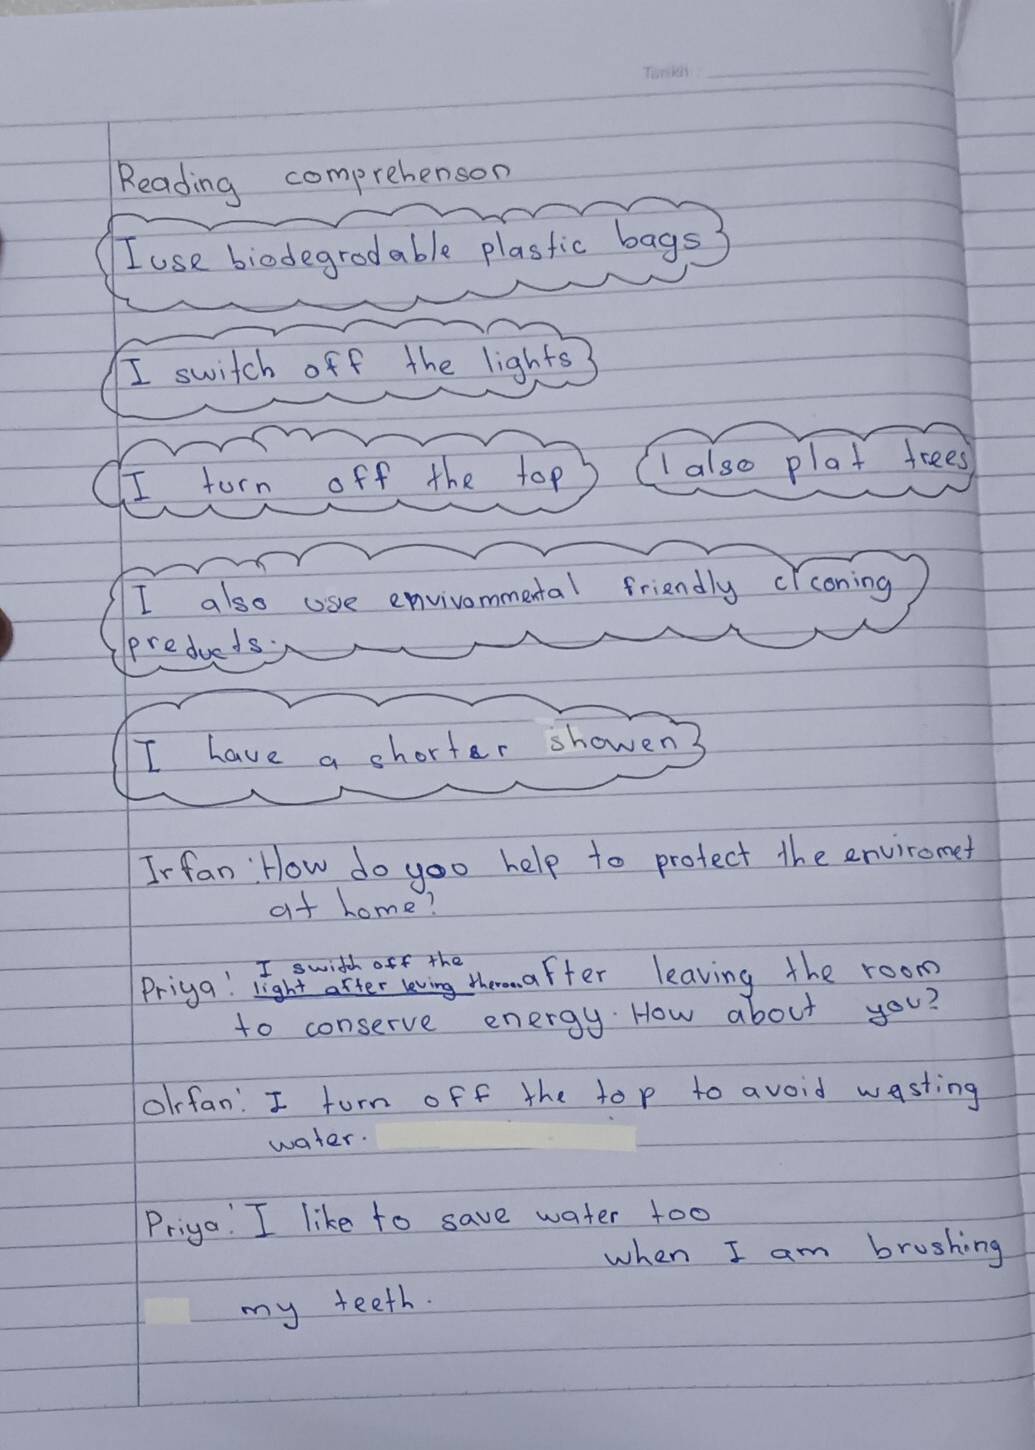 Tarikh:
Reading comprehenson
I use biodegrodable plastic bags
I switch off the lights
I turn off the top
I also plat trees
I also use envivommental friendly clconing
preducts.
I have a shorter showen
Irfan: How do yoo help to protect the enviromet
at home?
I swidth off the
Priya: light after leving theroom after leaving the room
to conserve energy. How about you?
OIrfan: I turn off the top to avoid wasting
water.
Priya: I like to save water too
when I am brushing
my teeth.